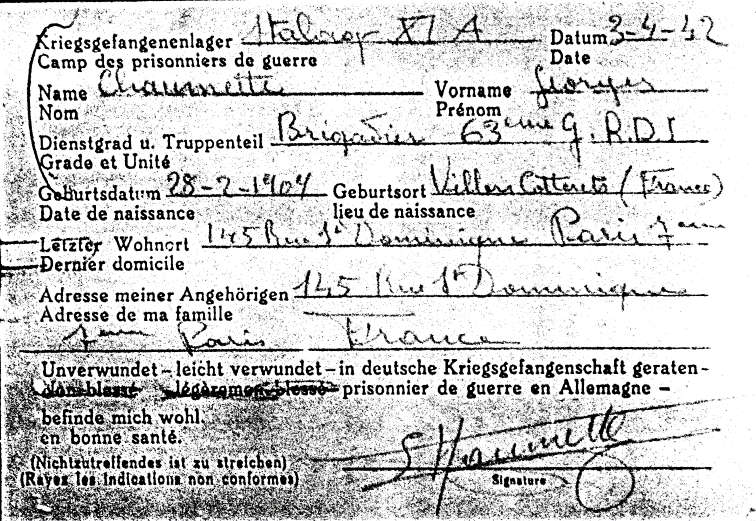 Kriegsgefangenenlager Stalag XI A Datum 3-4-42
Camp des prisonniers de guerre Date
Name Chaumette Vorname Georges
Nom Prénom
Dienstgrad u. Truppenteil Brigadier 63eme G.R.D.I
Grade et Unité
Geburtsdatum 28-2-1904 Geburtsort Villers Cotterets (France)
Date de naissance lieu de naissance
Letzter Wohnort 145 Rue St Dominique Paris 7eme
Dernier domicile
Adresse meiner Angehörigen 145 Rue St Dominique
Adresse de ma famille
7eme Paris France
Unverwundet – leicht verwundet – in deutsche Kriegsgefangenschaft geraten –
non blessé légèrement blessé prisonnier de guerre en Allemagne –
befinde mich wohl.
en bonne santé.
(Nichtzutreffendes ist zu streichen) G Chaumette
(Rayez les indications non conformes) Signature